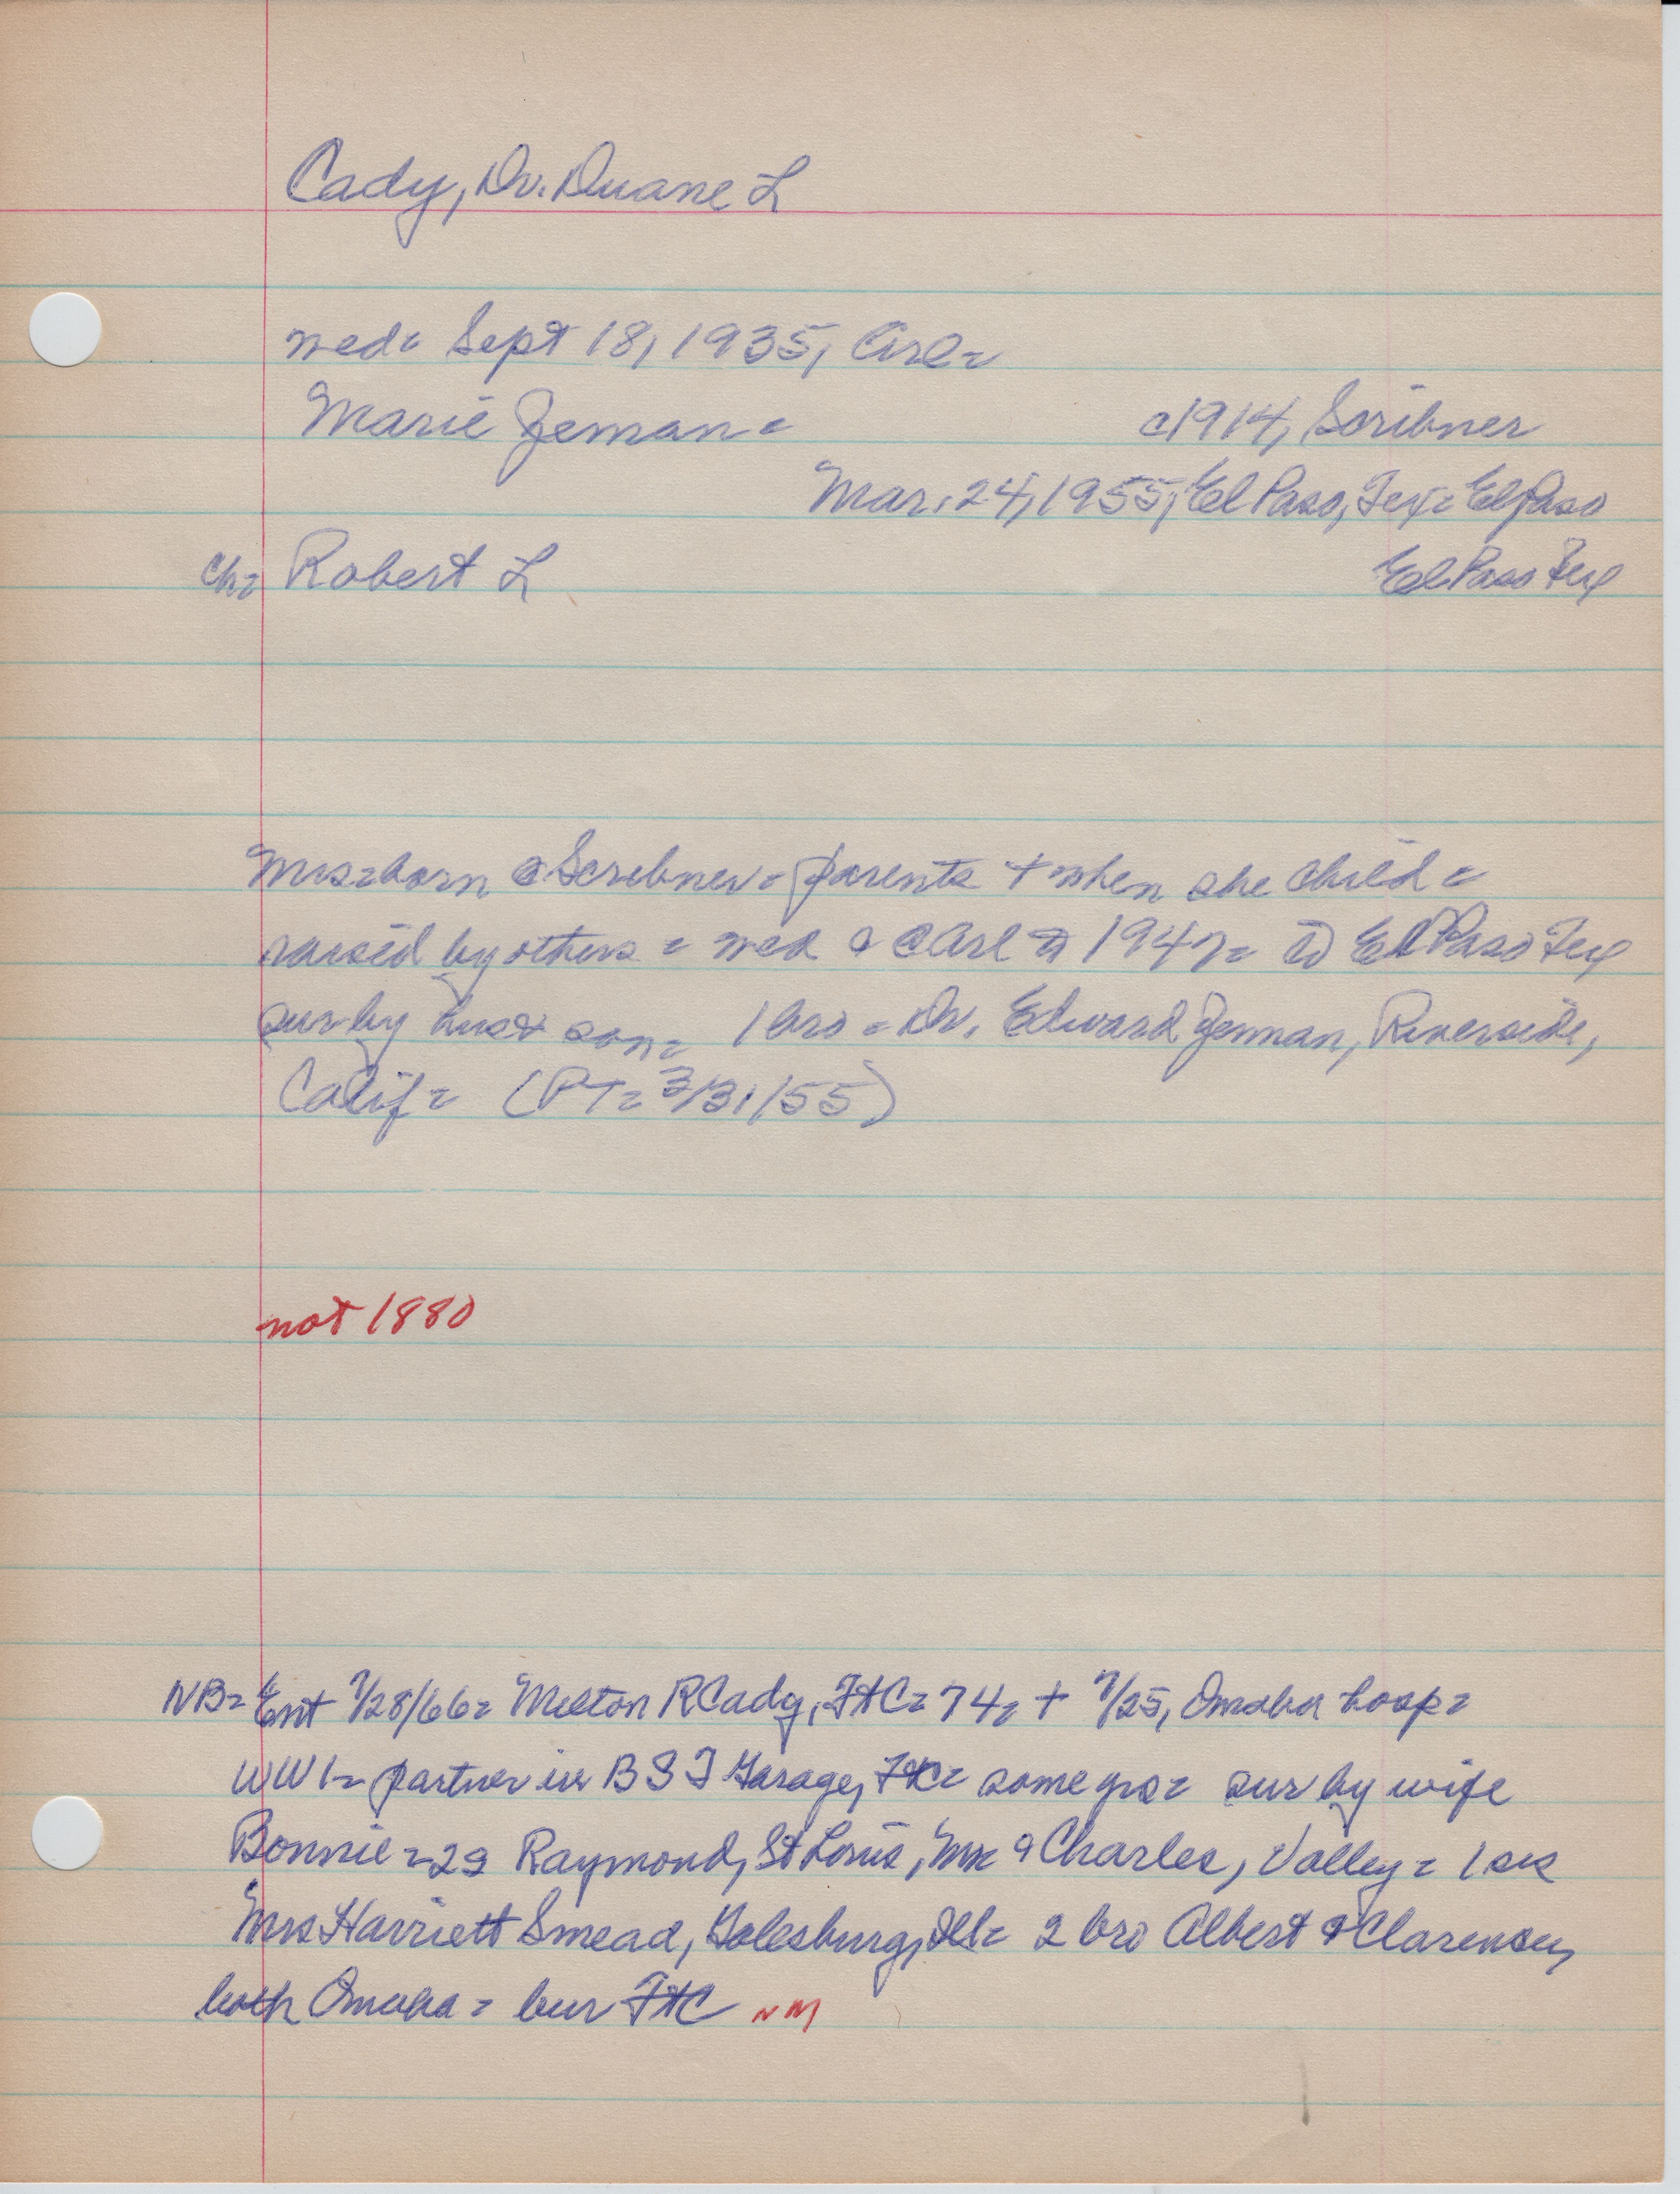 Cady, Dr. Duane L
wed= Sept 18, 1935, Arl=
Marie Zeman= c1914, Scribner
Mar. 24, 1955, El Paso, Tex= El Paso
ch= Robert L El Paso Tex
Mrs=born @ Scribner= parents + when she child=
raised by others = wed @ Arl 1947= to El Paso Tex
sur by hus & son= 1 bro = Dr. Edward Zeman, Riverside,
Calif= (PT= 3/31/55)
not 1880
NB= Ent 7/28/66= Milton R Cady, FtC= 74= + 7/25, Omaha hosp=
WW1= partner in B S J Garage, FtC= some yrs= sur by wife
Bonnie = 2s Raymond, St Louis, & Charles, Valley= 1 sis
Mrs Harriett Smead, Galesburg, Ill= 2 bro Albert & Clarence,
both Omaha= bur FtC NM